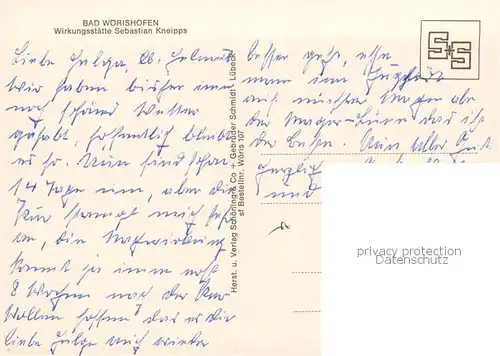 BAD WÖRISHOFEN
Wirkungsstätte Sebastian Kneipps
Liebe Helga, lb. Helmut
Wir haben bisher nur
noch schönes Wetter
gehabt, hoffentlich bleibt
es so. Nun sind schon
14 Tage um, aber die
Kur strengt mich sehr
an, die Nachwirkung
kommt ja immer erst
8 Wochen nach der Kur
Wollen hoffen das es dir
liebe Helga auch wieder
besser geht, esse
man im
auf nüchternen Magen
der das ist
der Beste. Nun alles Gute
herzlich
und
Herst. u. Verlag Schöning & Co + Gebrüder Schmidt · Lübeck
sf Bestellnr. Wöris 107
S+S
privacy protection
Datenschutz